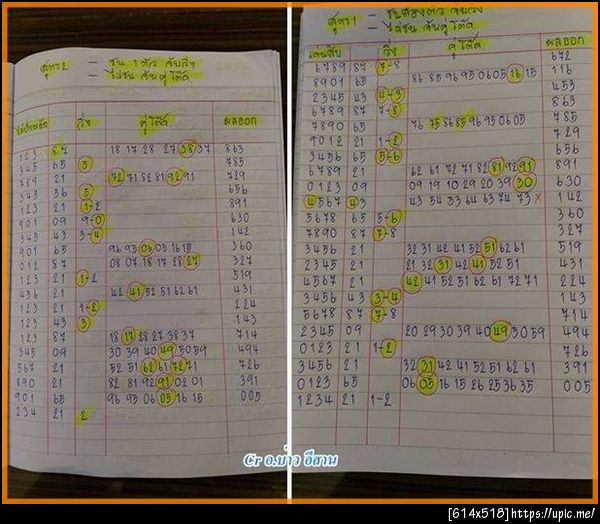 สูตร 2 - ชน 1 ตัว จับวิ่ง
- ไม่ชน จับคู่โต๊ด
วิ่ง คู่โต๊ด ผลออก
123 87 18 17 28 27 38 37 863
345 65 5 785
789 21 72 71 82 81 92 91 729
345 56 5 656
123 21 1-2 891
901 09 9-0 630
345 43 3-4 142
901 65 96 95 06 05 16 15 360
012 87 08 07 18 17 28 27 327
123 21 1-2 519
456 21 42 41 52 51 62 61 431
123 21 1-2 224
123 43 3 143
123 87 18 17 28 27 38 37 714
345 09 30 39 40 49 50 59 494
567 21 52 51 62 61 72 71 726
890 21 82 81 92 91 02 01 391
901 65 96 95 06 05 16 15 005
234 21 2
สูตร 1 - ชนสองตัว จับวิ่ง
- ไม่ชน จับคู่โต๊ด
วิ่ง คู่โต๊ด ผลออก
672
6789 87 7-8 116
8901 65 86 85 96 95 06 05 16 15 453
2345 43 4-3 863
6789 87 7-8 785
7890 65 76 75 86 85 96 95 06 05 729
9012 21 1-2 656
3456 65 5-6 891
6789 21 62 61 72 71 82 81 92 91 630
0123 09 09 19 10 29 20 39 30 142
4567 43 43 54 53 64 63 74 73 x 360
5678 65 5-6 327
7890 87 7-8 519
3456 21 32 31 42 41 52 51 62 61 431
2345 21 21 32 31 42 41 52 51 224
4567 21 42 41 52 51 62 61 72 71 143
3456 43 3-4 714
5678 87 7-8 494
2345 09 20 29 30 39 40 49 50 59 726
0123 21 1-2 391
3456 21 32 31 42 41 52 51 62 61 005
0123 65 06 05 16 15 26 25 36 35
1234 21 1-2
Cr อ.บ่าว อีสาน
[614x518]https://upic.me/